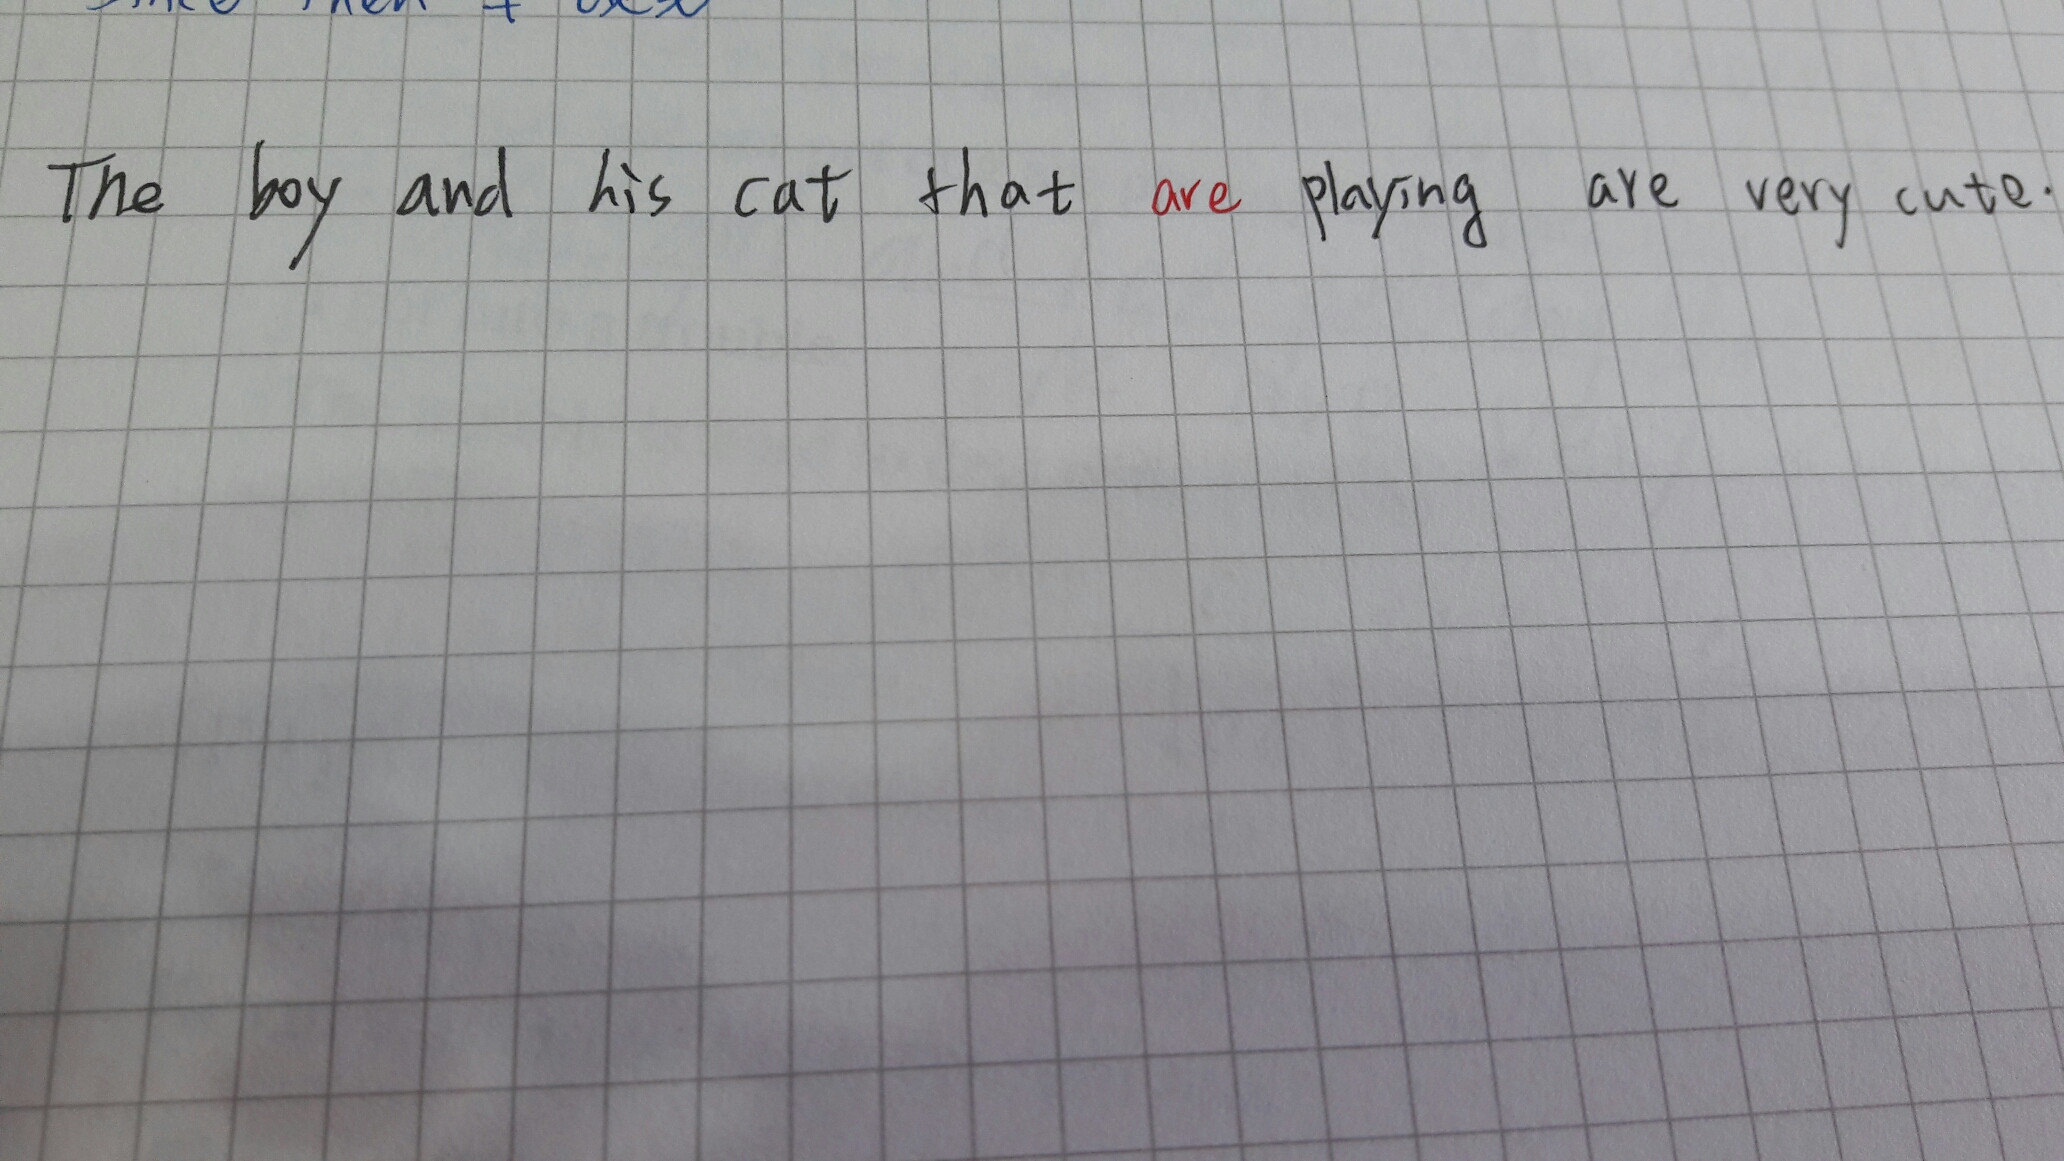 since then +
The boy and his cat that are playing are very cute.